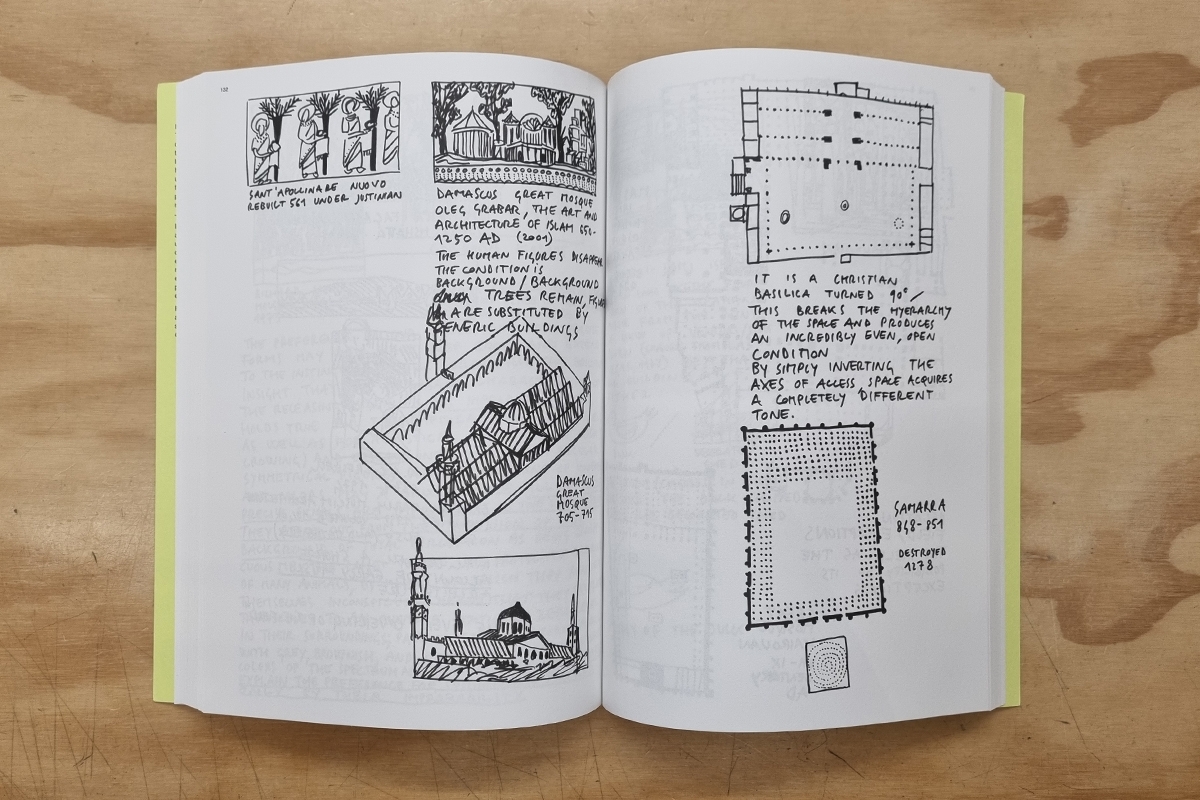 132
SANT'APOLLINARE NUOVO
REBUILT 561 UNDER JUSTINIAN
DAMASCUS GREAT MOSQUE
OLEG GRABAR, THE ART AND
ARCHITECTURE OF ISLAM 650-
1250 AD (2001)
THE HUMAN FIGURES DISAPPEAR
THE CONDITION IS
BACKGROUND / BACKGROUND
TREES REMAIN,
ARE SUBSTITUTED BY
GENERIC BUILDINGS
DAMASCUS
GREAT
MOSQUE
705-715
IT IS A CHRISTIAN
BASILICA TURNED 90° /
THIS BREAKS THE HYERARCHY
OF THE SPACE AND PRODUCES
AN INCREDIBLY EVEN, OPEN
CONDITION
BY SIMPLY INVERTING THE
AXES OF ACCESS SPACE ACQUIRES
A COMPLETELY DIFFERENT
TONE.
SAMARRA
848-851
DESTROYED
1278